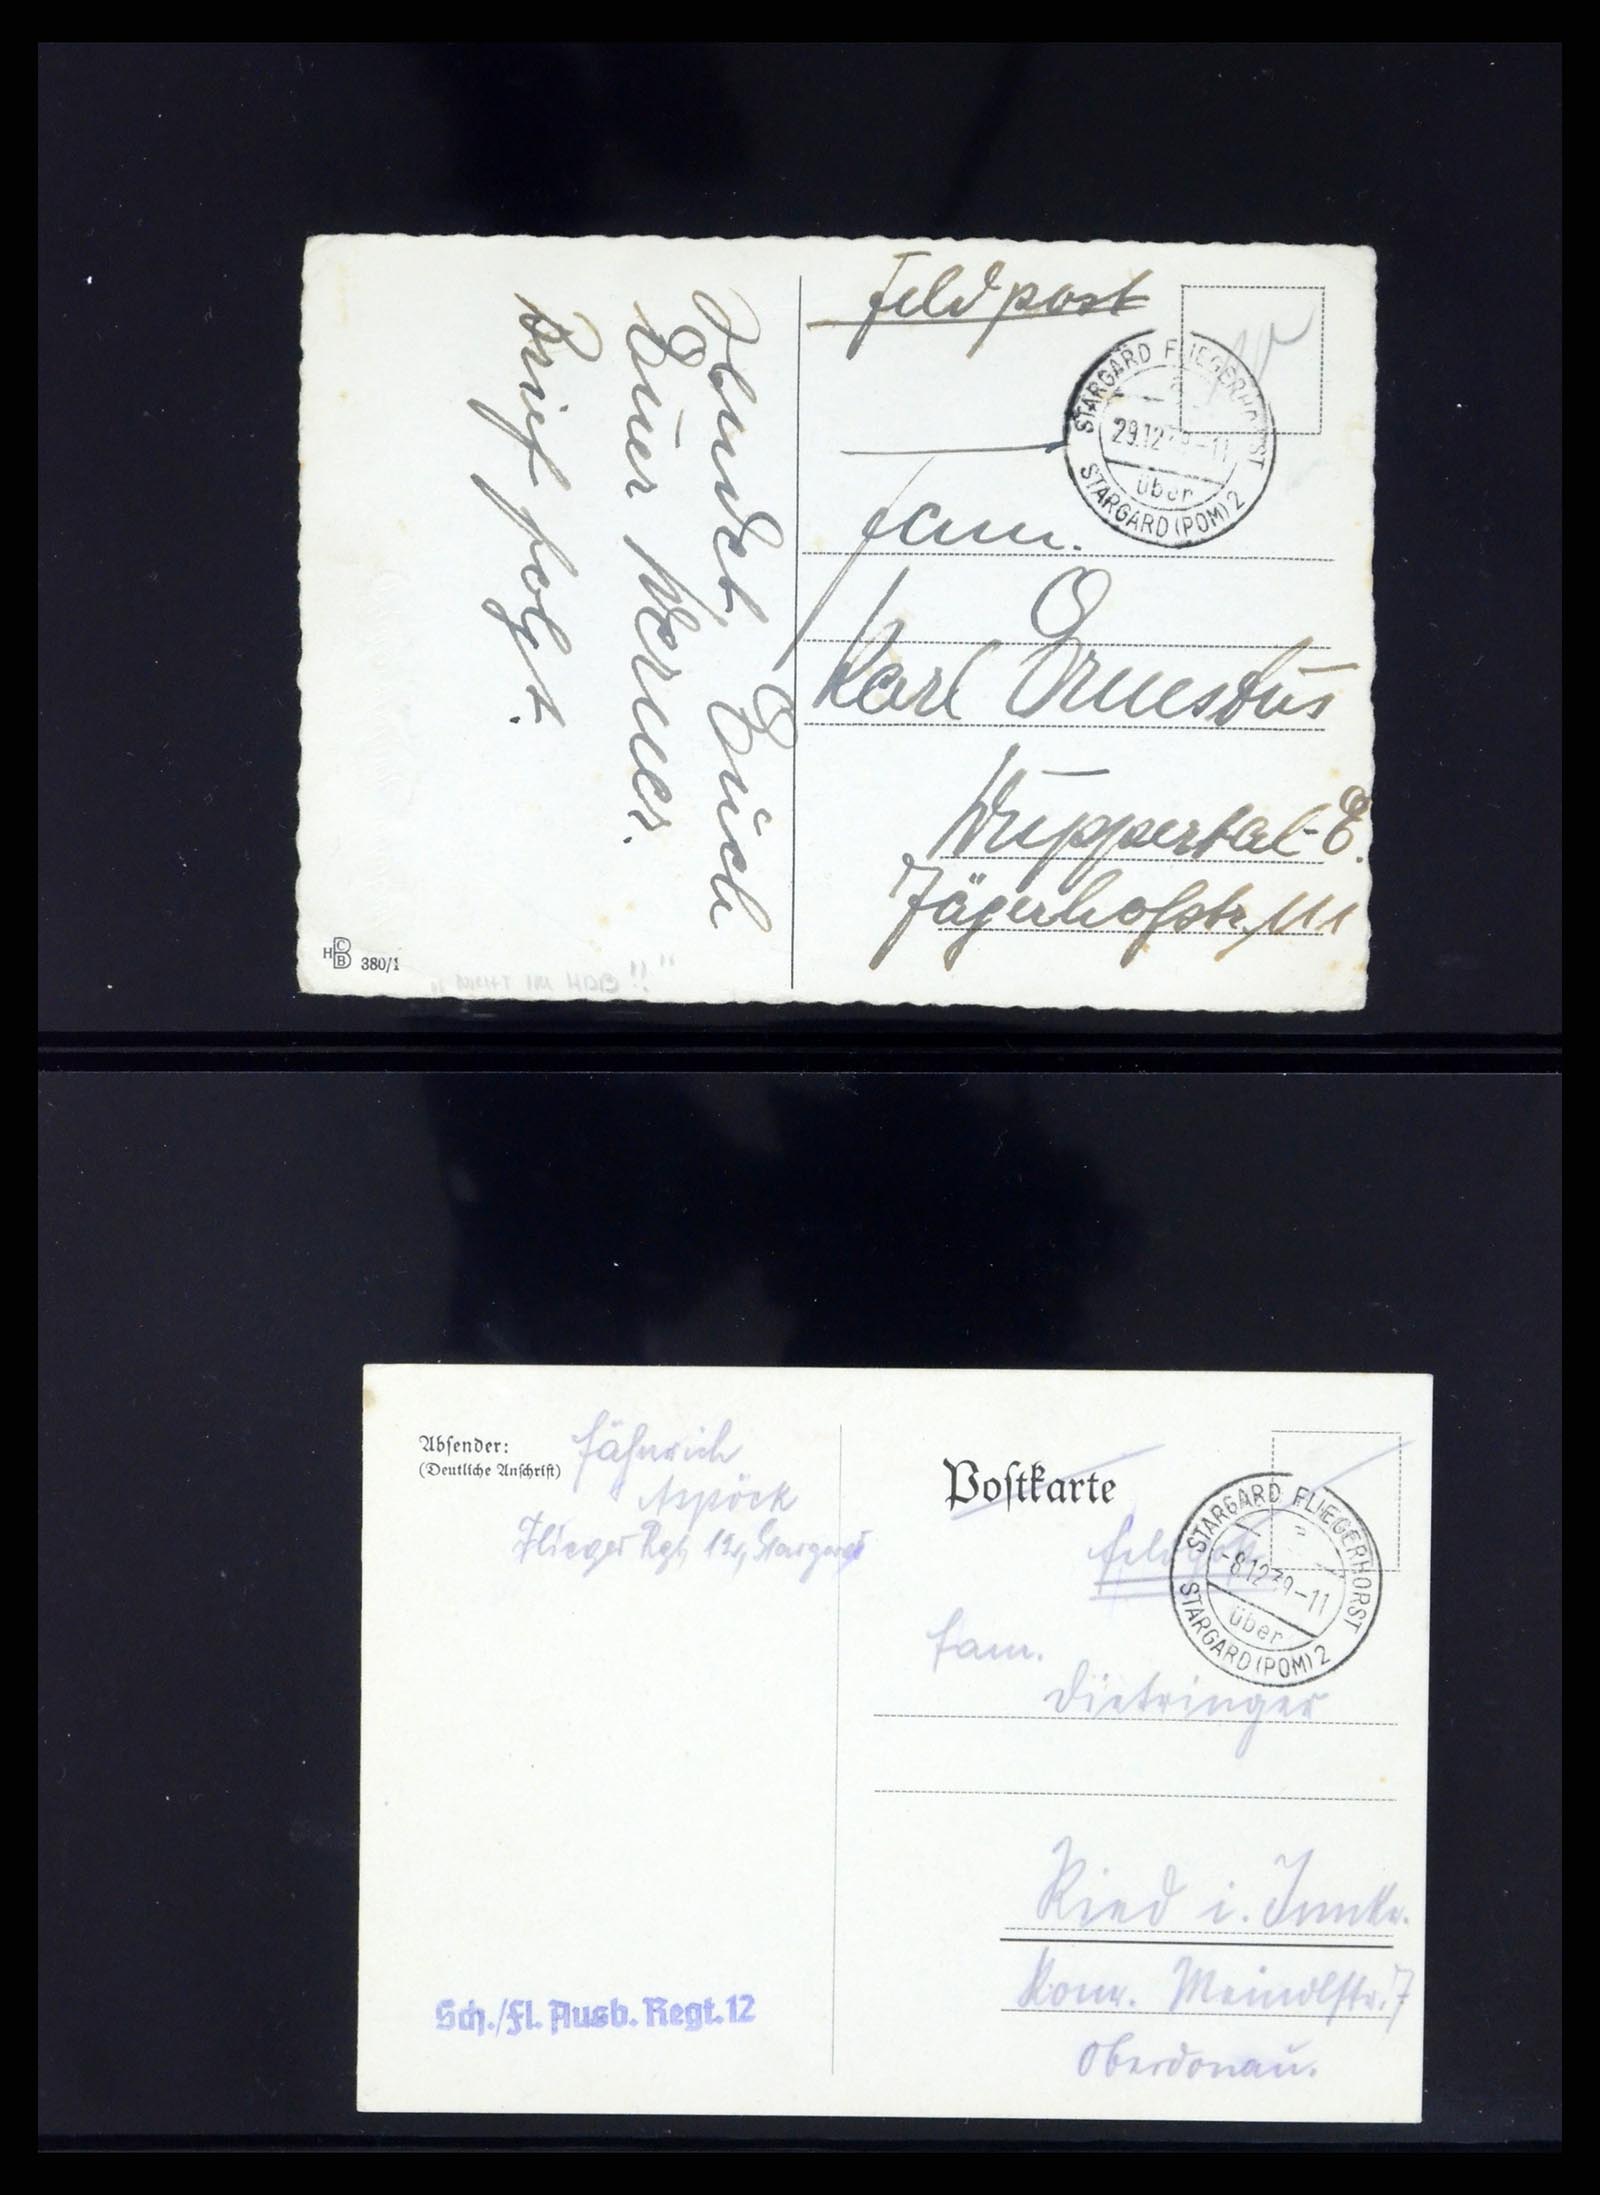 Feldpost
STARGARD FLIEGERHORST
29.12.39-11
über
STARGARD (POM) 2
Fam.
Karl Ernestus
Wuppertal-E.
Jägerhofstr. 111
Euch
Euer Werner.
Brief folgt.
HCBB 380/1
Absender:
(Deutliche Anschrift)
Fähnrich
Aspöck
Flieger Rgt. 12, Stargard
Postkarte
Feldpost
STARGARD FLIEGERHORST
-8.12.39-11
über
STARGARD (POM) 2
Fam.
Dietringer
Ried i. Innkr.
Konr. Meindlstr. 7
Oberdonau.
Sch./Fl. Ausb. Regt. 12